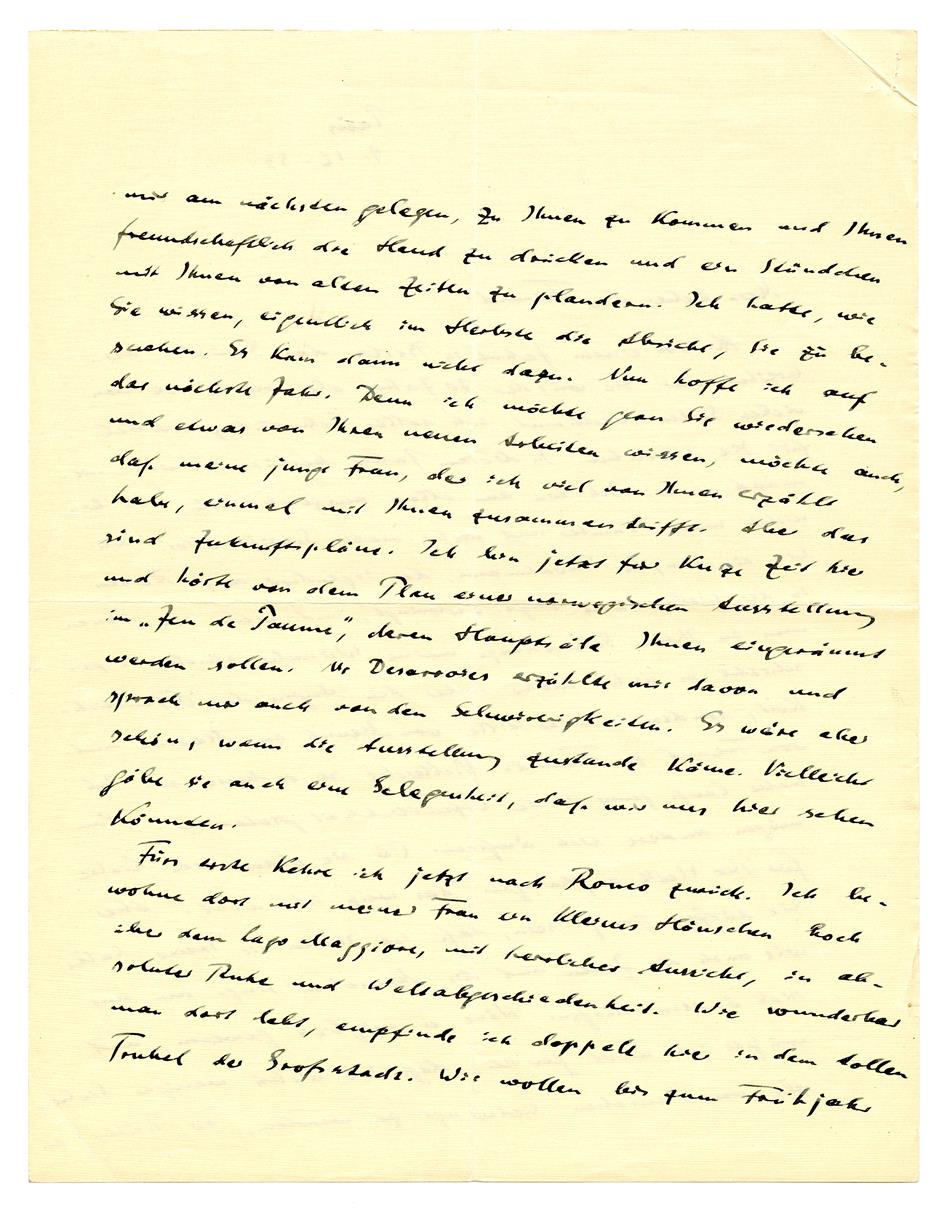 mir am nächsten gelegen, zu Ihnen zu kommen und Ihnen
freundschaftlich die Hand zu drücken und ein Stündchen
mit Ihnen von alten Zeiten zu plaudern. Ich hatte, wie
Sie wissen, eigentlich im Herbste die Absicht, Sie zu be-
suchen. Es kam dann nicht dazu. Nun hoffe ich auf
das nächste Jahr. Denn ich möchte gern Sie wiedersehen
und etwas von Ihren neuen Arbeiten wissen, möchte auch,
daß meine junge Frau, der ich viel von Ihnen erzählt
habe, einmal mit Ihnen zusammentrifft. Aber das
sind Zukunftspläne. Ich bin jetzt für kurze Zeit hier
und hörte von dem Plan einer norwegischen Ausstellung
im „Jeu de Paume“, deren Hauptsäle Ihnen eingeräumt
werden sollen. Mr Desarrois erzählte mir davon und
sprach mir auch von den Schwierigkeiten. Es wäre aber
schön, wenn die Ausstellung zustande käme. Vielleicht
gäbe sie auch eine Gelegenheit, daß wir uns hier sehen
könnten.
Fürs erste kehre ich jetzt nach Ronco zurück. Ich be-
wohne dort mit meiner Frau ein kleines Häuschen hoch
über dem Lago Maggiore, mit herrlicher Aussicht, in ab-
soluter Ruhe und Weltabgeschiedenheit. Wie wunderbar
man dort lebt, empfinde ich doppelt hier in dem tollen
Trubel der Großstadt. Wir wollen bis zum Frühjahr